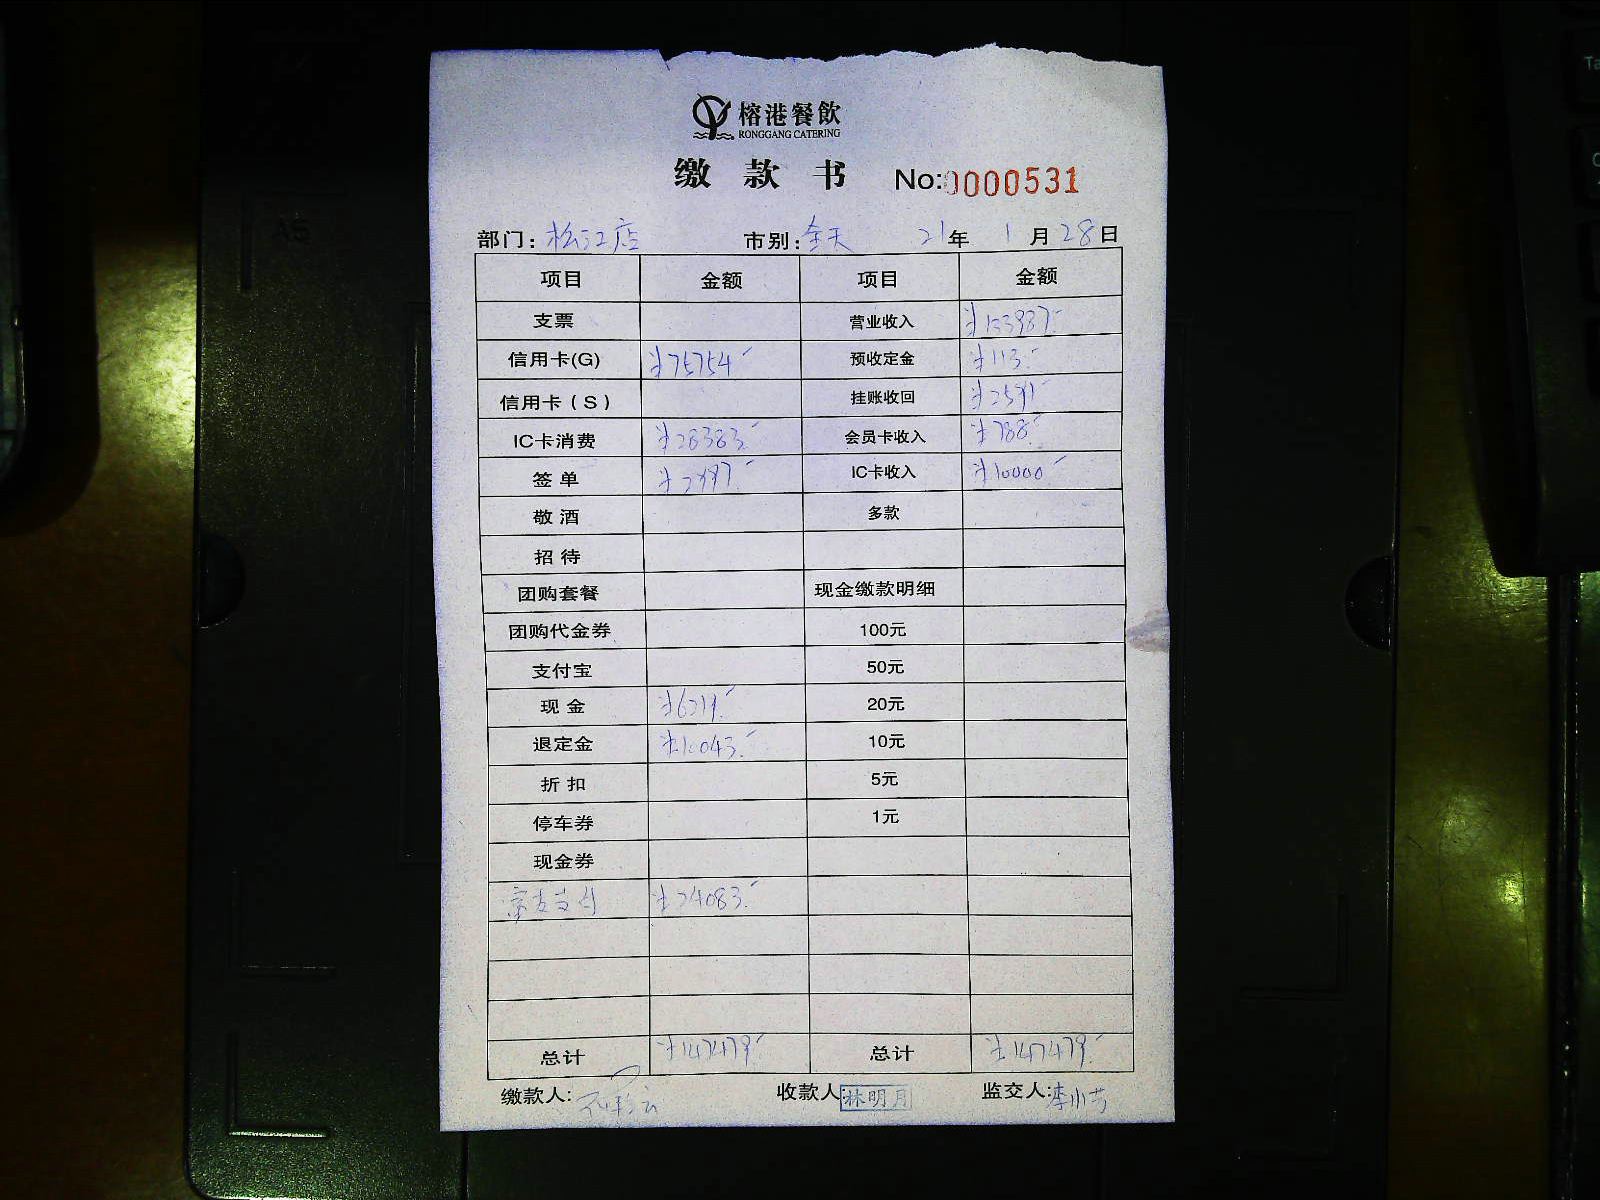 榕港餐飲
RONGGANG CATERING
缴款书 No:0000531
部门: 松江店 市别: 全天 21年 1月 28日
项目 金额 项目 金额
支票 营业收入 ¥133987.-
信用卡(G) ¥75754.- 预收定金 ¥113.-
信用卡(S) 挂账收回 ¥2591.-
IC卡消费 ¥28383.- 会员卡收入 ¥788.-
签单 ¥2997.- IC卡收入 ¥10000.-
敬酒 多款
招待
团购套餐 现金缴款明细
团购代金券 100元
支付宝 50元
现金 ¥6219.- 20元
退定金 ¥10043.- 10元
折扣 5元
停车券 1元
现金券
支付 ¥24083.-
总计 ¥147479.- 总计 ¥147479.-
缴款人: 收款人: 林明月 监交人: 李小